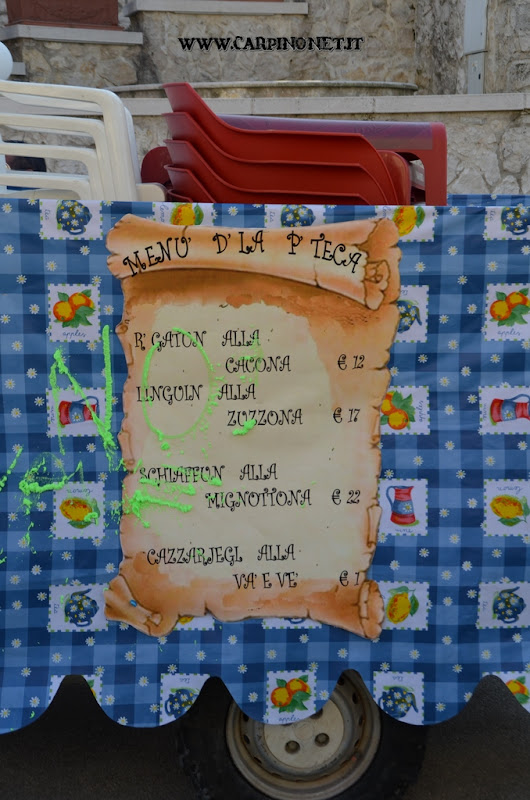 WWW.CARPINONET.IT
MENU' D' LA P' TECA
R' GATON ALLA
CACONA € 12
LINGUIN ALLA
ZUZZONA € 17
SCHIAFFUN ALLA
MIGNOTTONA € 22
CAZZARJEGL ALLA
VA' E VE' € 1
apples